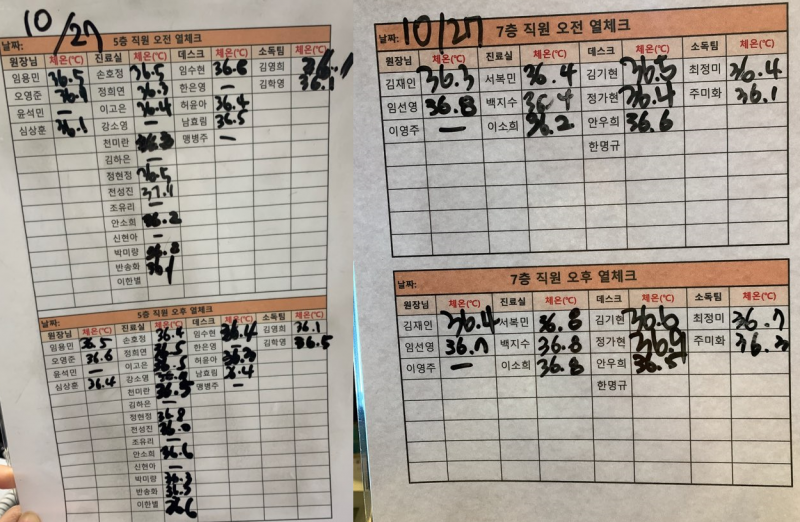 10/27
날짜: 5층 직원 오전 열체크
원장님 체온(℃) 진료실 체온(℃) 데스크 체온(℃) 소독팀 체온(℃)
임용민 36.5 손호정 36.5 임수현 36.8 김영희 36.1
오영준 36.1 정희연 36.3 한은영 — 김학영 36.1
윤석민 — 이고은 36.4 허윤아 36.4
심상훈 36.1 강소영 — 남효림 36.5
천미란 36.3 맹병주 —
김하은 —
정현정 36.5
전성진 37.1
조유리 —
안소희 36.2
신현아 —
박미랑 36.8
반송화
이한별
날짜: 5층 직원 오후 열체크
원장님 체온(℃) 진료실 체온(℃) 데스크 체온(℃) 소독팀 체온(℃)
임용민 36.5 손호정 36.4 임수현 36.4 김영희 36.1
오영준 36.6 정희연 36.5 한은영 — 김학영 36.5
윤석민 — 이고은 36.5 허윤아 36.3
심상훈 36.4 강소영 남효림 36.4
천미란 36.5 맹병주 —
김하은 —
정현정 36.8
전성진 36.0
조유리 —
안소희 36.6
신현아 —
박미랑 36.3
반송화 36.5
이한별 36.6
날짜: 10/27 7층 직원 오전 열체크
원장님 체온(℃) 진료실 체온(℃) 데스크 체온(℃) 소독팀 체온(℃)
김재인 36.3 서복민 36.4 김기현 36.5 최정미 36.4
임선영 36.8 백지수 36.4 정가현 36.4 주미화 36.1
이영주 — 이소희 36.2 안우희 36.6
한명규
날짜: 7층 직원 오후 열체크
원장님 체온(℃) 진료실 체온(℃) 데스크 체온(℃) 소독팀 체온(℃)
김재인 36.4 서복민 36.8 김기현 36.6 최정미 36.7
임선영 36.7 백지수 36.8 정가현 36.9 주미화 36.3
이영주 — 이소희 36.8 안우희 36.5
한명규